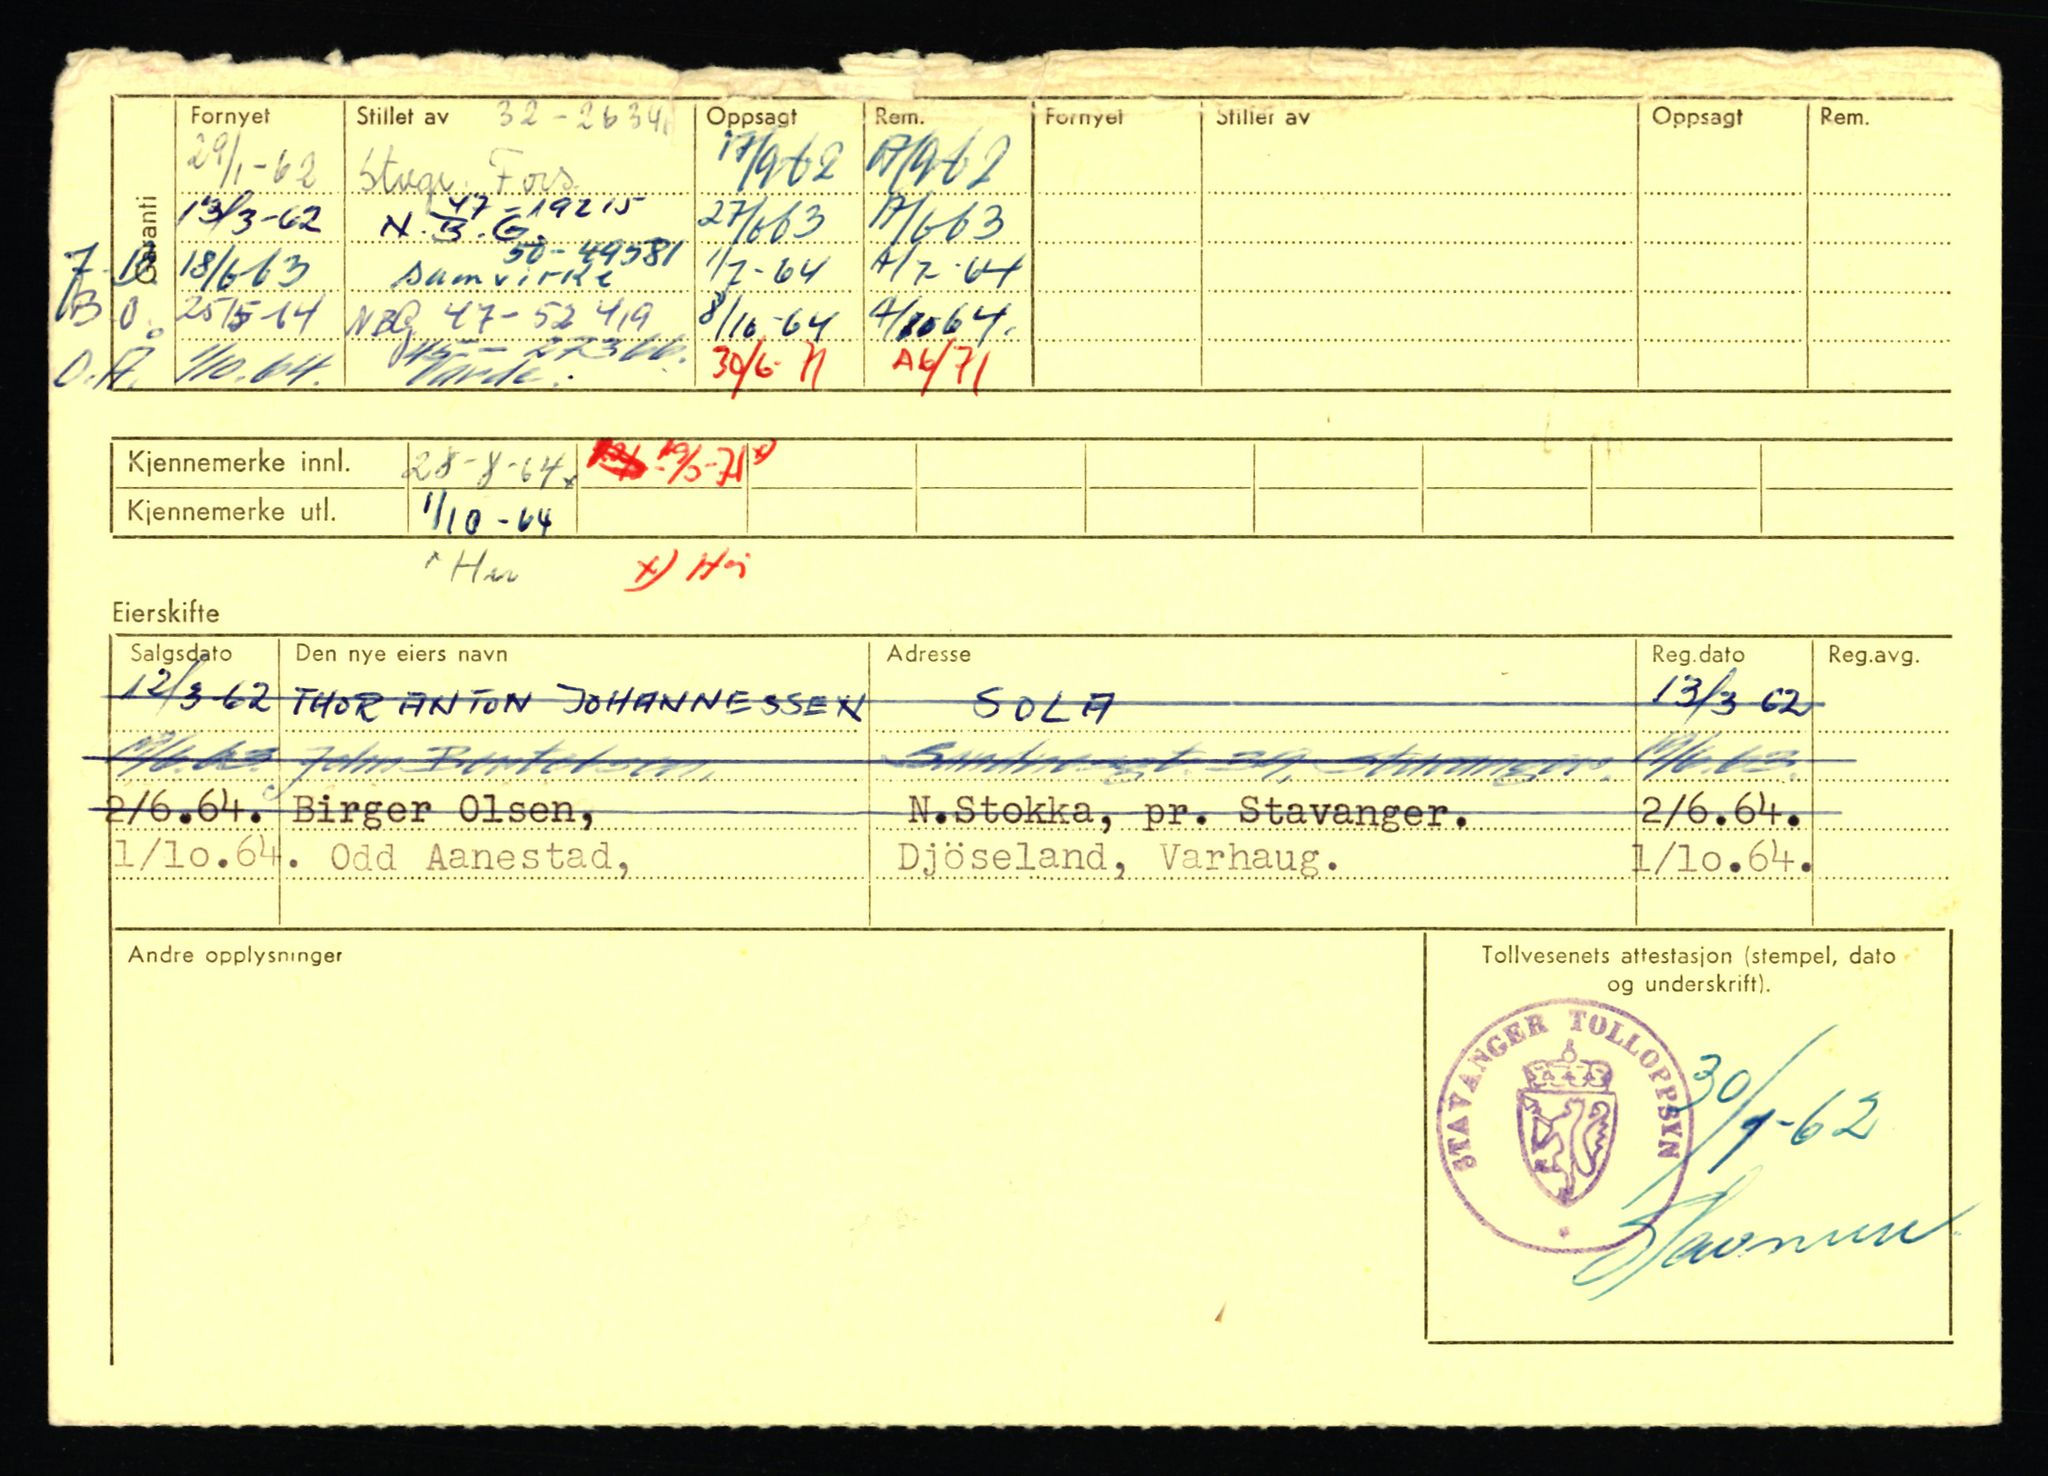 Fornyet Stillet av 32-2634 Oppsagt Rem. Fornyet Stillet av Oppsagt Rem.
29/1-62 Stvgr. Fors. 17/9 62 17/9 62
Garanti
47-19215
13/3-62 N.B.G. 27/6 63 /6 63
50-49581
18/6 63 Samvirke 1/7-64 A/7-64
B.O. 25/5-64 NBG 47-52419 8/10-64 A/10 64.
45-27366.
O.Å. 1/10.64. Varde. 30/6-71 A6/71
Kjennemerke innl. 28-8-64 x
Kjennemerke utl. 1/10-64
x Her x) Hos
Eierskifte
Salgsdato Den nye eiers navn Adresse Reg.dato Reg.avg.
12/3 62 THOR ANTON JOHANNESSEN SOLA 13/3 62
John Bertelsen, Stavanger.
2/6.64. Birger Olsen, N.Stokka, pr. Stavanger. 2/6.64.
1/10.64. Odd Aanestad, Djöseland, Varhaug. 1/10.64.
Andre opplysninger
Tollvesenets attestasjon (stempel, dato
og underskrift).
STAVANGER TOLLOPPSYN
30/1-62